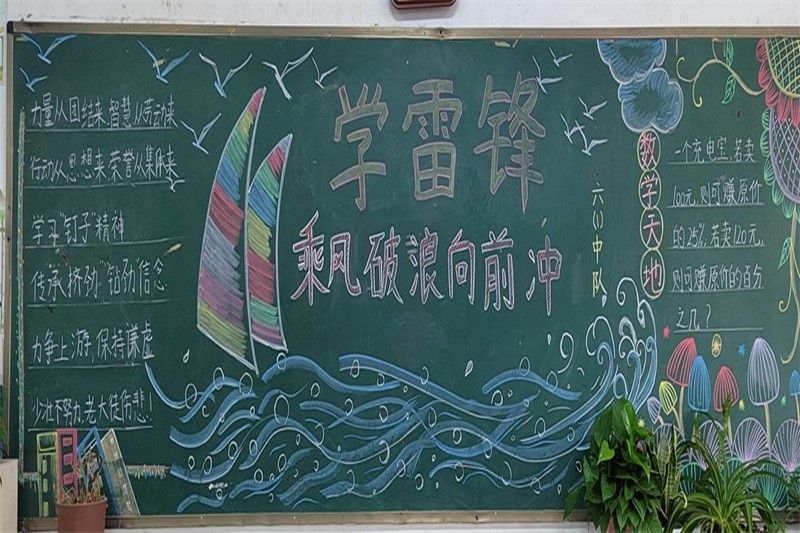 力量从团结来,智慧从劳动来
行动从思想来,荣誉从集体来
学习“钉子”精神
传承“挤劲”“钻劲”信念
力争上游,保持谦虚
少壮不努力,老大徒伤悲.
学雷锋
乘风破浪向前冲
六(1)中队
数学天地
一个充电宝,若卖
100元,则可赚原价
的25%,若卖120元,
则可赚原价的百分
之几?